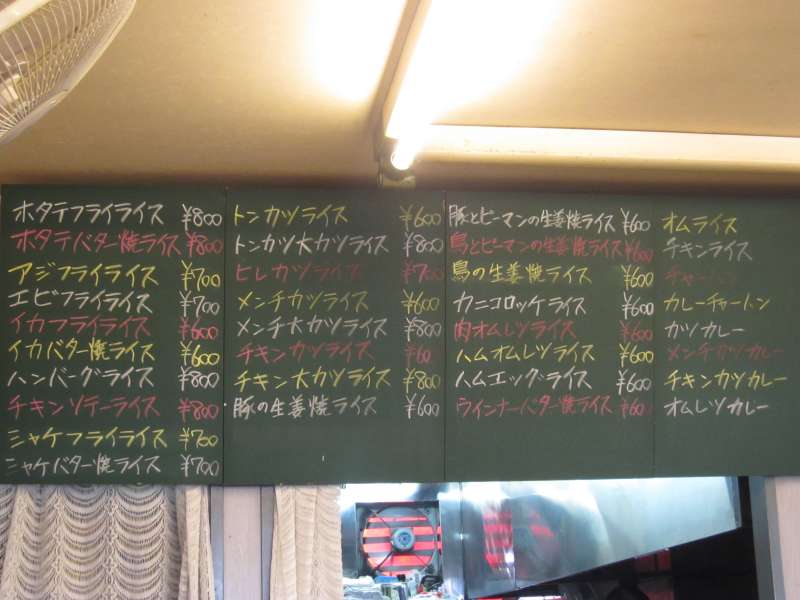 ホタテフライライス ¥800
ホタテバター焼ライス ¥800
アジフライライス ¥700
エビフライライス ¥700
イカフライライス ¥600
イカバター焼ライス ¥600
ハンバーグライス ¥800
チキンソテーライス ¥800
シャケフライライス ¥700
シャケバター焼ライス ¥700
トンカツライス ¥600
トンカツ大カツライス ¥800
ヒレカツライス ¥700
メンチカツライス ¥600
メンチ大カツライス ¥800
チキンカツライス ¥60
チキン大カツライス ¥800
豚の生姜焼ライス ¥600
豚とピーマンの生姜焼ライス ¥600
鳥とピーマンの生姜焼ライス ¥600
鳥の生姜焼ライス ¥600
カニコロッケライス ¥600
肉オムレツライス ¥600
ハムオムレツライス ¥600
ハムエッグライス ¥600
ウインナーバター焼ライス ¥600
オムライス
チキンライス
チャーハン
カレーチャーハン
カツカレー
メンチカツカレー
チキンカツカレー
オムレツカレー